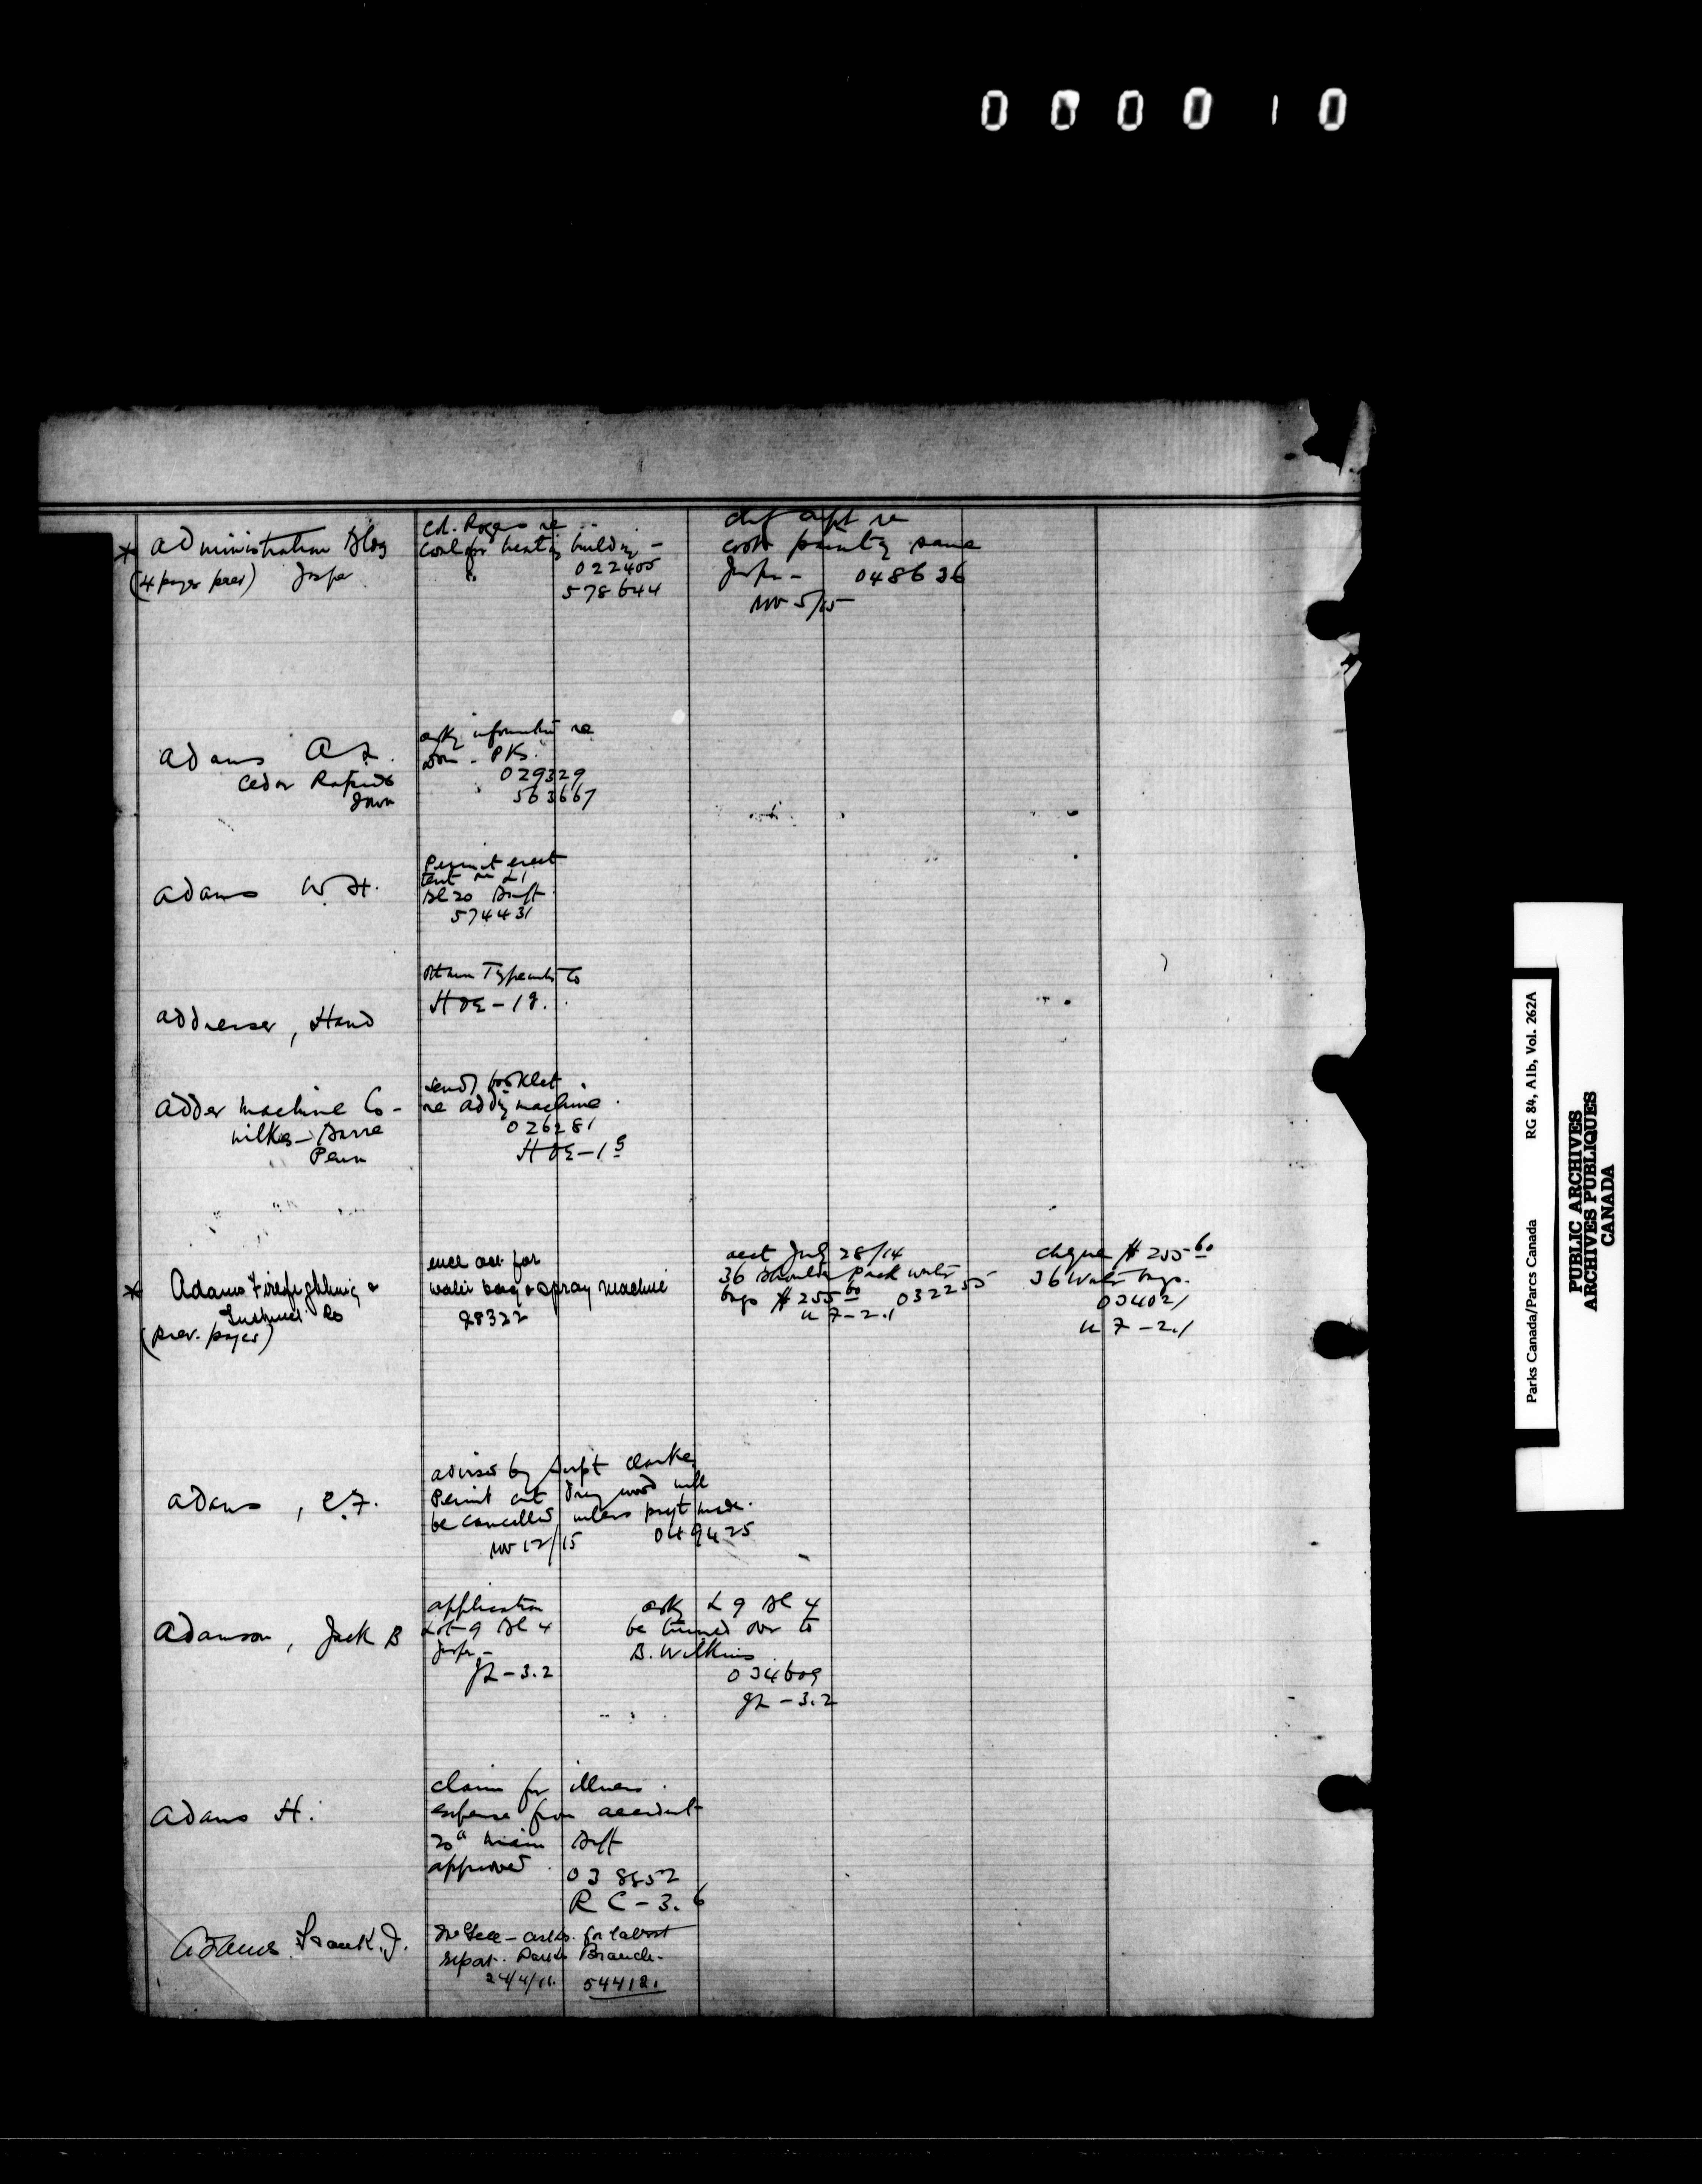 000010
* Administration Bldg
(4 pages prev) Jasper
Col. Rogers re
coal for heating building -
"
022405
578644
re
cost painting same
Jasper - 048636
Nov 5/15
Adams A.
Cedar Rapids
Iowa
askg information re
Dom. Pks.
029329
563667
Adams W. H.
Permit erect
tent on L1
Bl 20 Banff
574431
Addresser, Hand
HOE-18.
Adder Machine Co-
Wilkes-Barre
Penn
sendg booklet
re adding machine.
026281
HOE-1
* Adams Firefighting &
(prev. pages)
encl acct for
water bag & spray machine
28322
acct July 28/14
36 shoulder pack water
bags $255.60 032255
U 7-2.1
cheque $255.60
36 water bags.
034021
U 7-2.1
Adams, E.F.
advised by Supt Clarke
Permit cut dry wood will
be cancelled unless paymt made.
Nov 12/15 049425
Adamson, Jack B
application
Lot 9 Bl 4
Jasper -
JL-3.2
askg L 9 Bl 4
be turned over to
B. Wilkins
034609
JL-3.2
Adams H.
claim for illness
expense from accident
Banff
approved.
038852
RC-3.6
Adams Frank J.
McGill - asks for latest
report. Parks Branch.
24/4/16. 544121
Parks Canada/Parcs Canada RG 84, A1b, Vol. 262A
PUBLIC ARCHIVES
ARCHIVES PUBLIQUES
CANADA